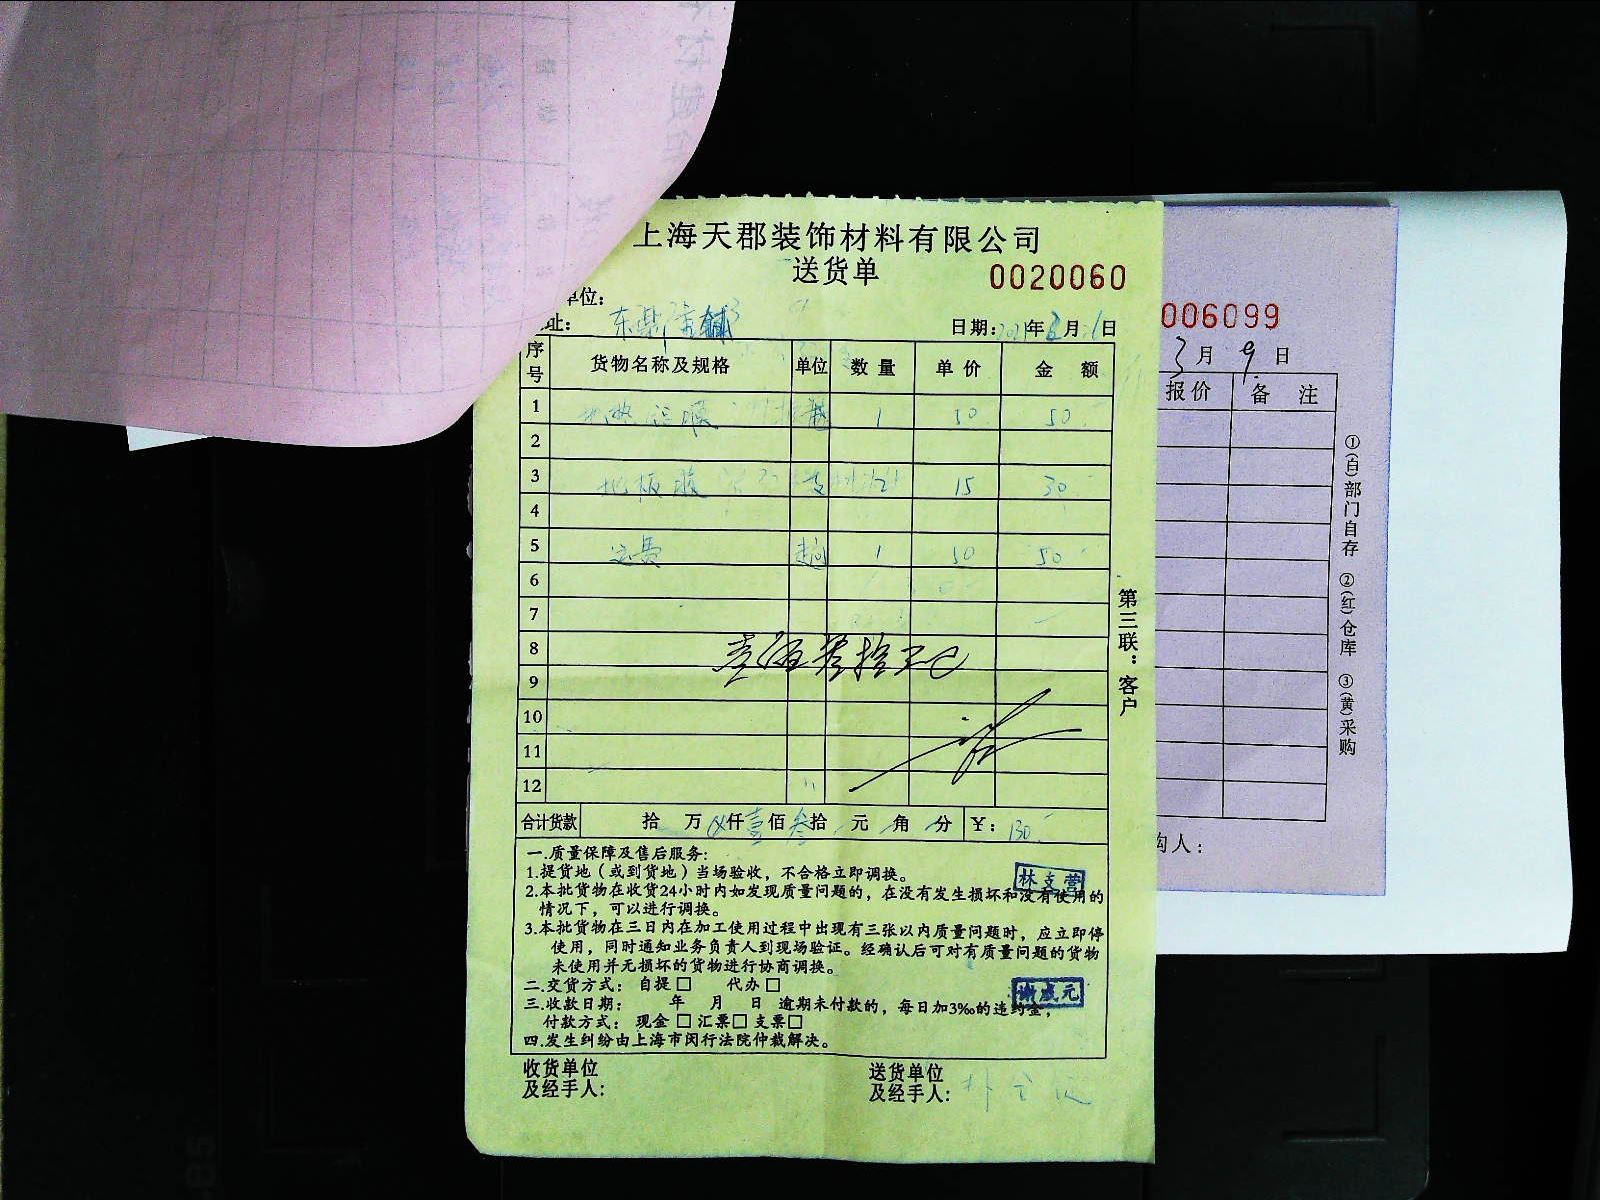 上海天郡装饰材料有限公司
送货单 0020060
单位:
址: 东
日期: 2021年 月 日
序号 货物名称及规格 单位 数量 单价 金额
1 1 50 50
2
3 地板膜 支 2 15 30
4
5 运费 趟 1 50 50
6
7
8 壹佰叁拾元
9
10
11
12
合计货款 拾 万 仟壹佰叁拾 元 角 分 ¥: 130
第三联:客户
一.质量保障及售后服务:
1.提货地(或到货地)当场验收,不合格立即调换。
2.本批货物在收货24小时内如发现质量问题的,在没有发生损坏和没有使用的
情况下,可以进行调换。
3.本批货物在三日内在加工使用过程中出现有三张以内质量问题时,应立即停
使用,同时通知业务负责人到现场验证。经确认后可对有质量问题的货物
未使用并无损坏的货物进行协商调换。
二.交货方式: 自提□ 代办□
三.收款日期: 年 月 日 逾期未付款的,每日加3‰的违约金,
付款方式: 现金□汇票□支票□
四.发生纠纷由上海市闵行法院仲裁解决。
收货单位
及经手人:
送货单位
及经手人:
006099
3月9日
报价 备注
①(白)部门自存 ②(红)仓库 ③(黄)采购
购人: